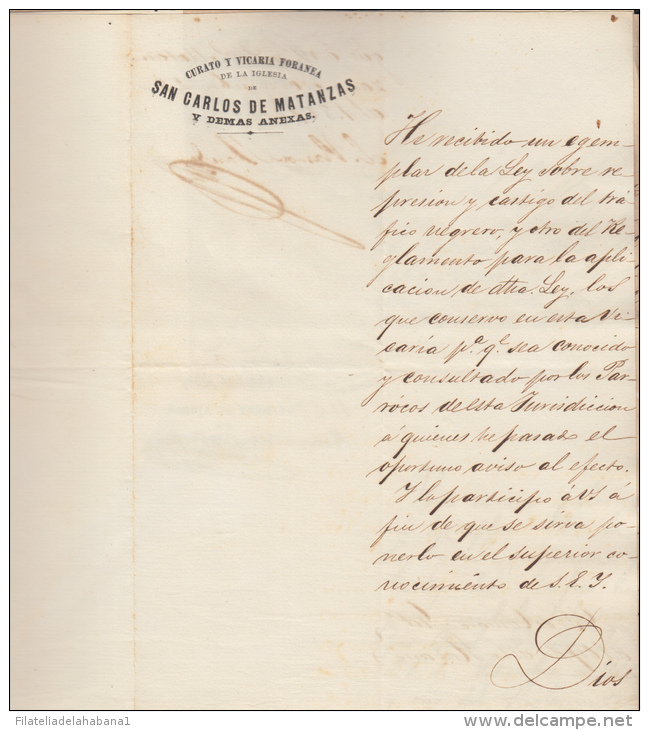 CURATO Y VICARIA FORANEA
DE LA IGLESIA
DE
SAN CARLOS DE MATANZAS
Y DEMAS ANEXAS.
He recibido un egem-
plar de la Ley sobre re-
presion y castigo del trá-
fico negrero, y otro del Re-
glamento para la apli-
cacion de dha. Ley, los
que conservo en esta Vi-
caría pa. qe. sea conocido
y consultado por los Pár-
rocos de esta Jurisdiccion
á quienes he pasado el
oportuno aviso al efecto.
Y lo participo á VS á
fin de que se sirva po-
nerlo en el superior co-
nocimiento de S. E. Y.
Dios
Filateliadelahabana1
delcampe.net